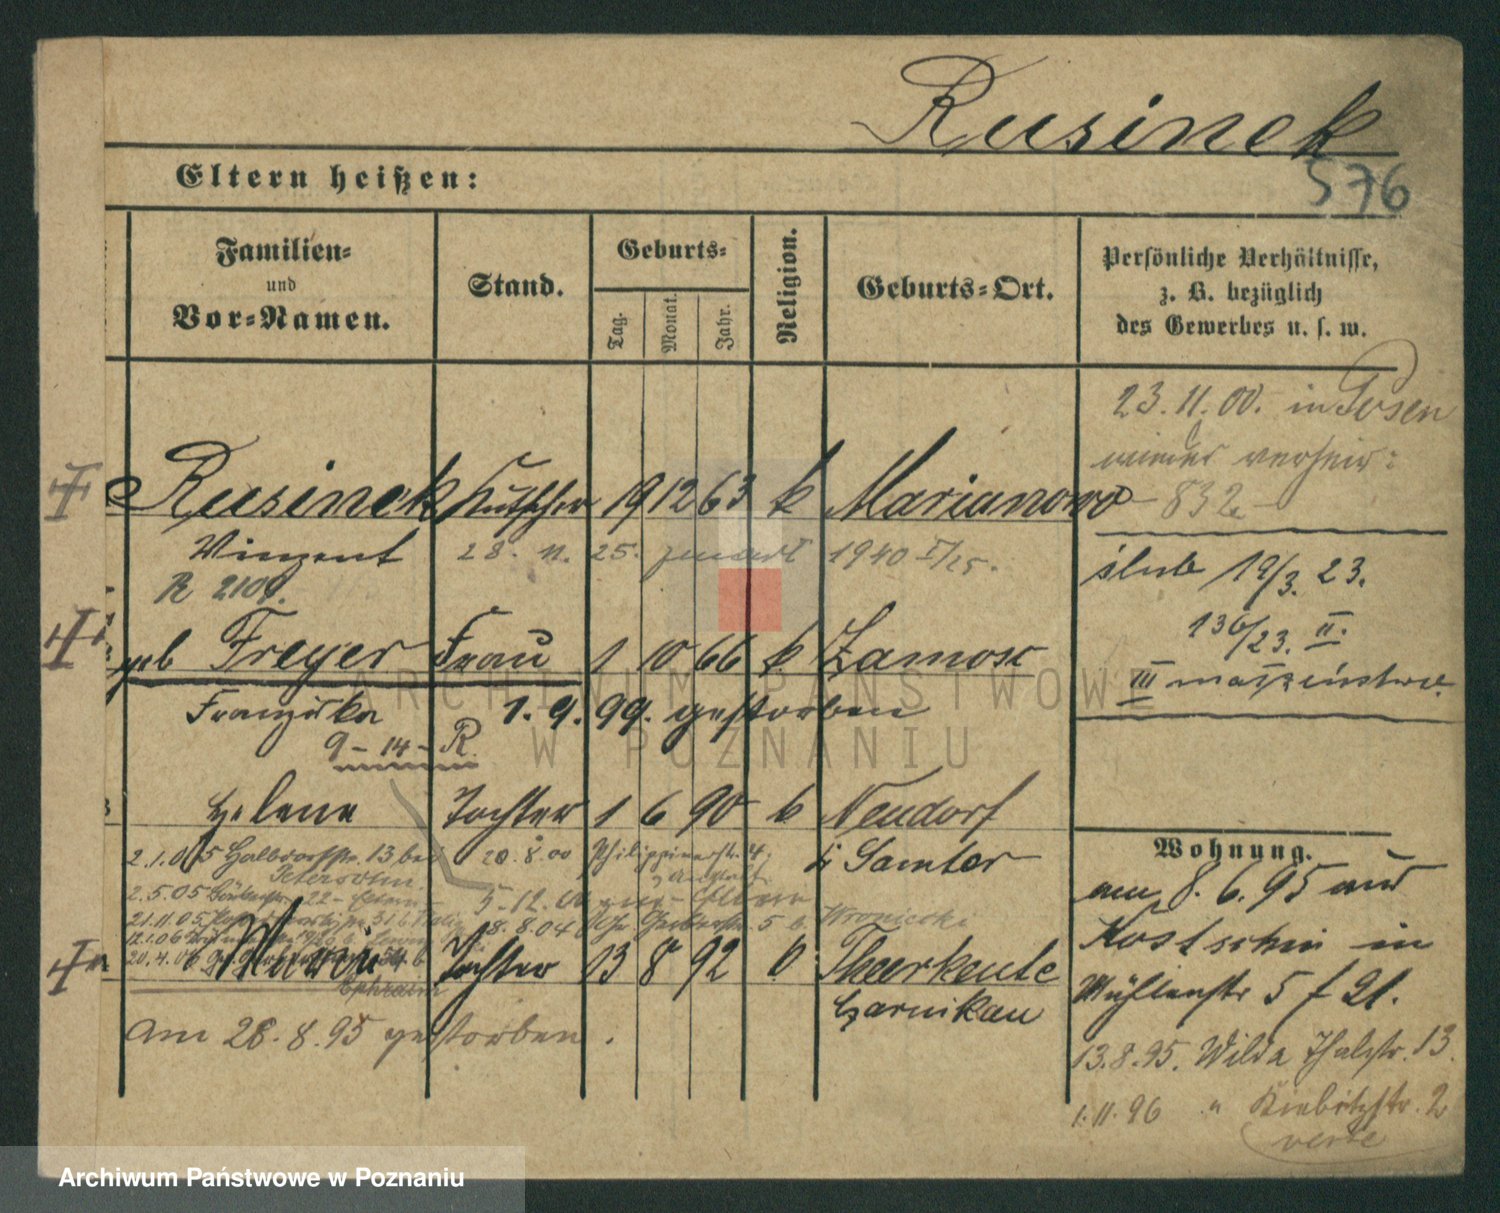 Rusinek
576
Eltern heißen:
Familien-
und
Vor-Namen.
Stand.
Geburts-
Tag.
Monat.
Jahr.
Religion.
Geburts-Ort.
Persönliche Verhältnisse,
z. B. bezüglich
des Gewerbes u. s. w.
23.11.00. in Posen
wieder verheir:
832
Rusinek Kutscher 19 12 63 k Marianowo
Vinzent 28. 11. 25. zmarł 1940 I/25.
R 2109.
ślub 19/3. 23.
136/23. II.
III małżeństwo.
geb Freyer Frau 1 10 66 k. Zamosc
Franziska 1. 9. 99. gestorben
9-14-R.
Helene Tochter 1 6 90 k Neudorf
b/ Samter
2.1.05 Halbdorfstr. 13 bei 20.8.00 Philippinerstr. 4.
2.5.05 22
21.11.05 31 18.8.04 5 Wroniecki
12.1.06
20.4.06
Ephraim
Marie Tochter 13 8 92 Theerkeute
Czarnikau
am 28.8.95 gestorben.
Wohnung.
am 8.6.95 aus
Kostschin in
Mühlenstr 5 f 21.
13.8.95. Wilda Thalstr. 13.
1.11.96 " Kiebitzstr. 2
verte
ARCHIWUM PAŃSTWOWE
W POZNANIU
Archiwum Państwowe w Poznaniu